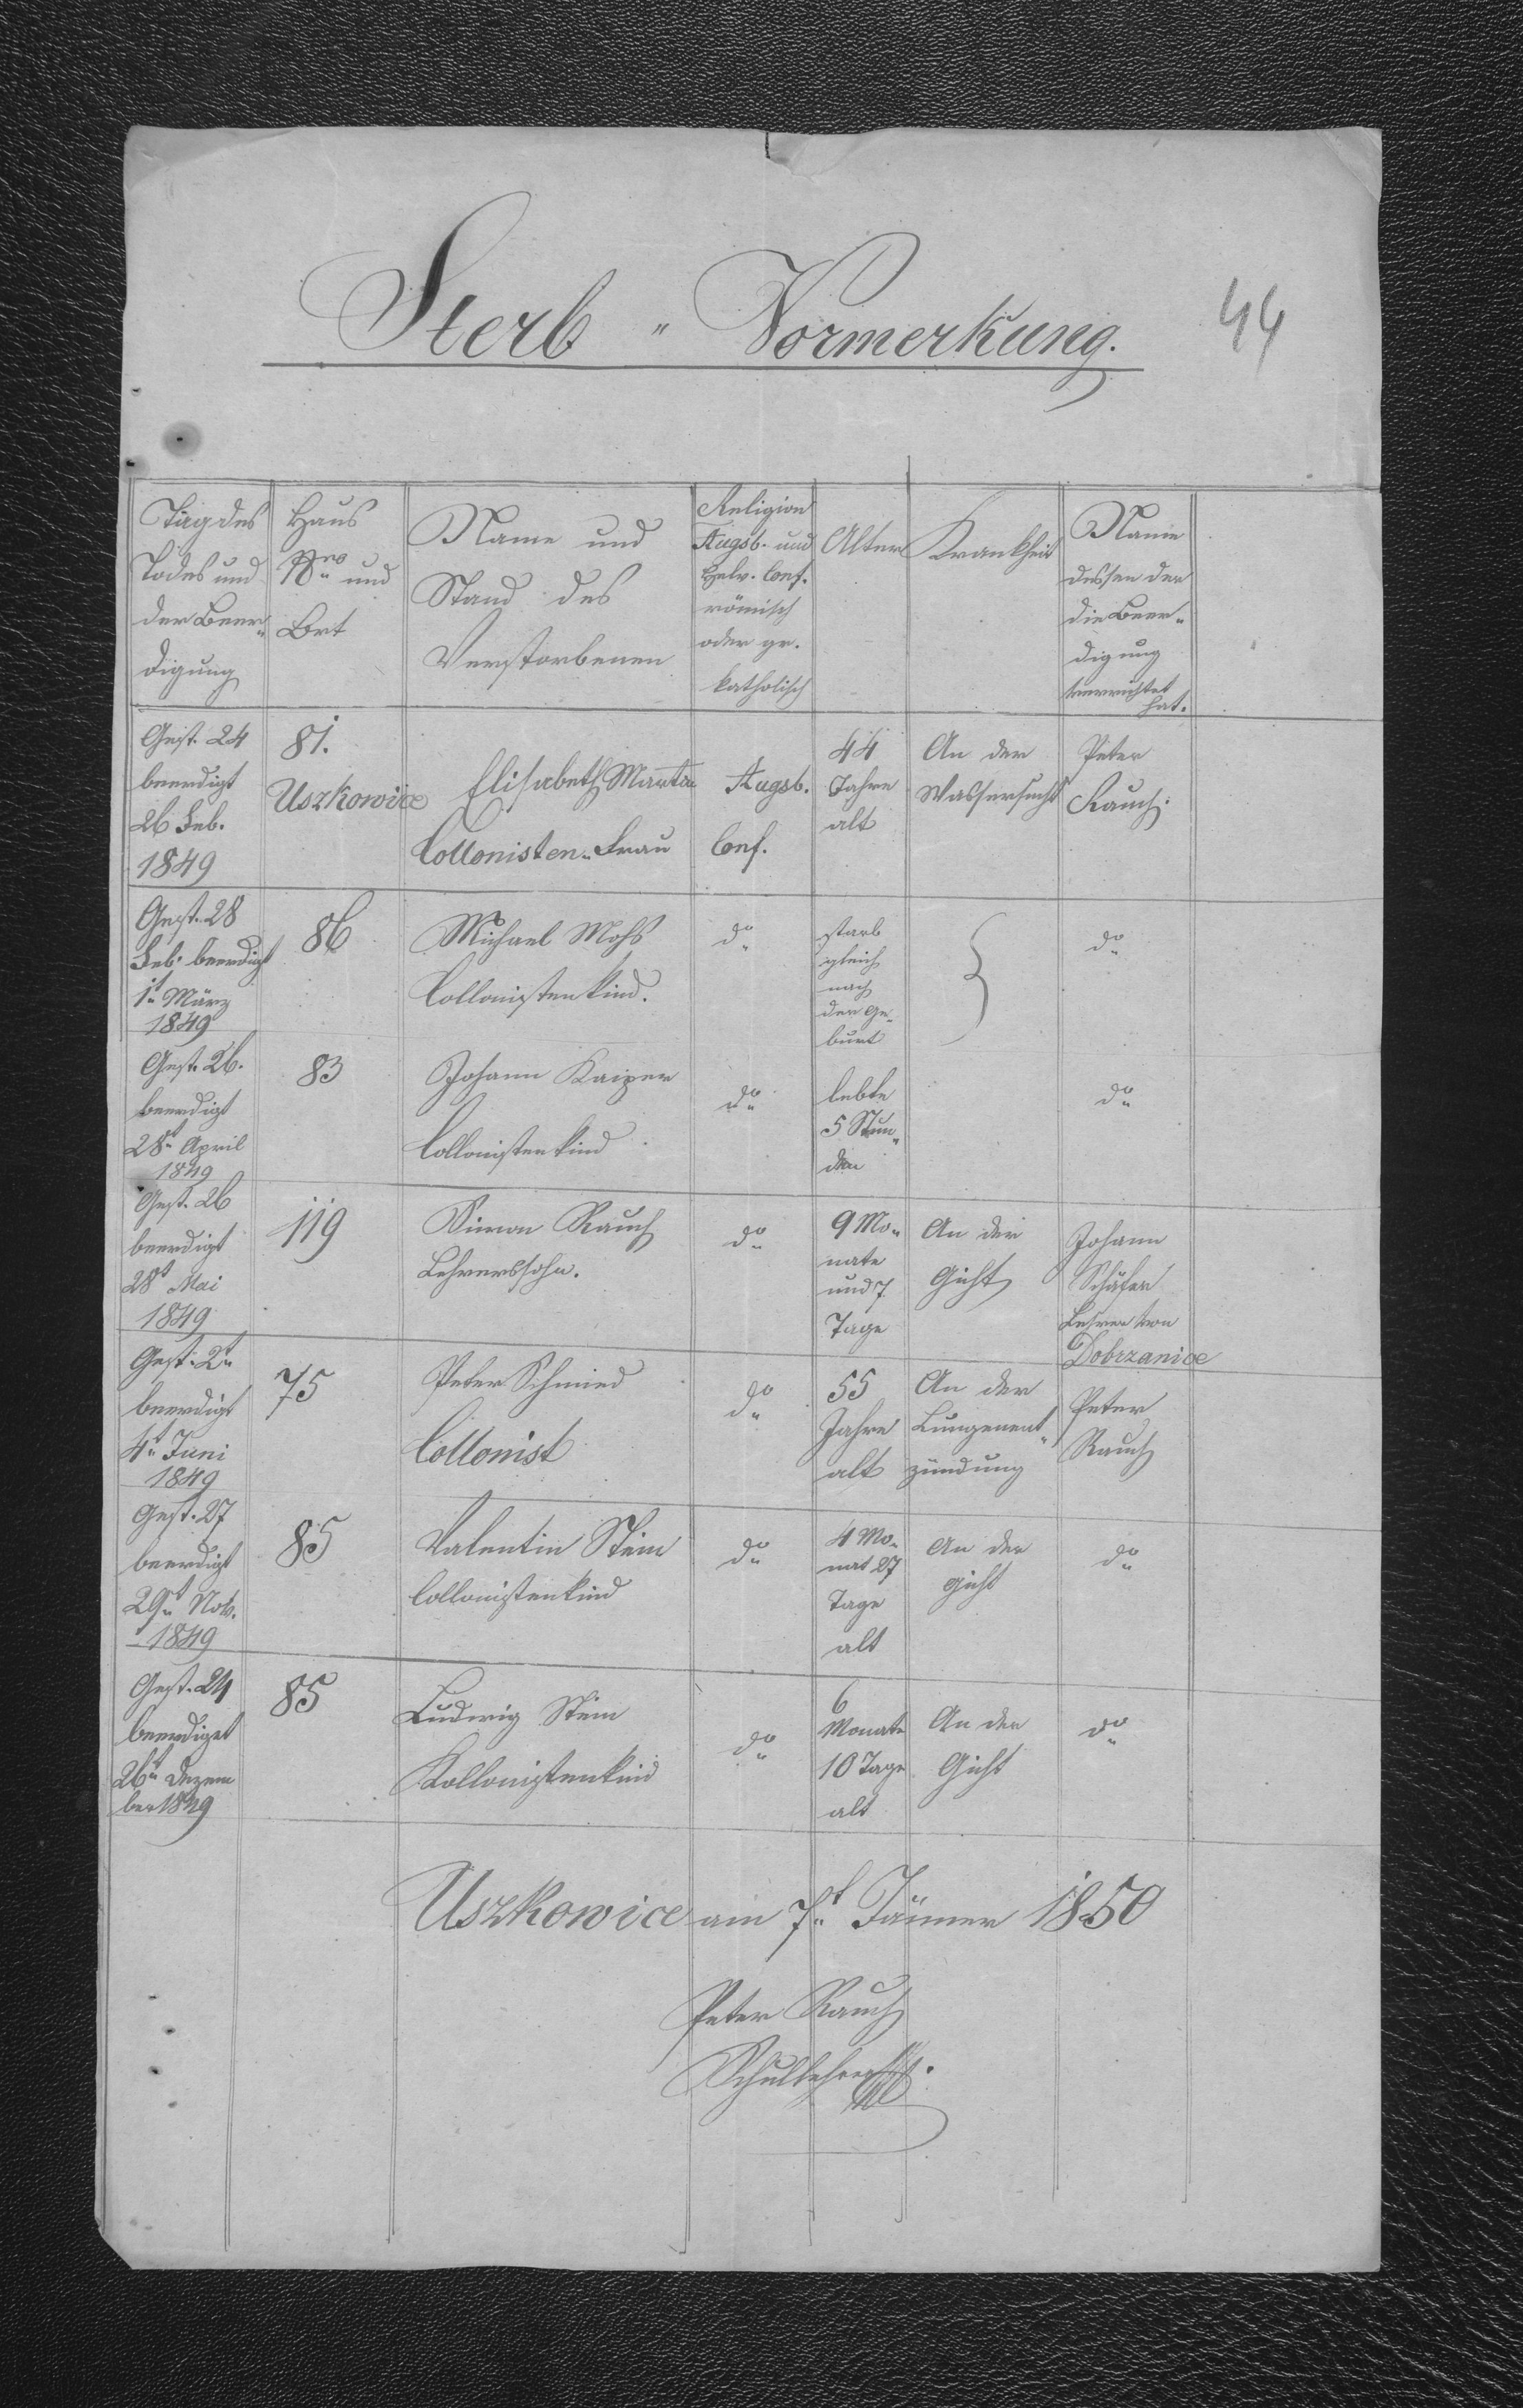 44
Sterb " Vormerkung.
Tag des
Todes und
der Beer-
digung
Haus
Nro und
Ort
Name und
Stand des
Verstorbenen
Religion
Augsb. und
Helv. Conf.
römisch
oder gr.
katholisch
Alter
Krankheit
Name
dessen der
die Beer-
digung
verrichtet
hat.
Gest. 24
beerdigt
26 Feb.
1849
81.
Uszkowice
Elisabeth
Collonisten-Frau
Augsb.
Conf.
44
Jahre
alt
An der
Wassersucht
Peter
Rauch.
Gest. 28
Feb. beerdigt
1t März
1849
86
Michael Mohs
Collonistenkind.
do
starb
gleich
nach
der Ge-
burt
do
Gest. 26.
beerdigt
28t April
1849
83
Johann Kaiper
Collonistenkind
do
lebte
5 Stun-
den
do
Gest. 26
beerdigt
28t Mai
1849
119
Simon Rauch
Lehrerssohn.
do
9 Mo-
nate
und 7
Tage
An der
Gicht
Johann
Schäfer
Lehrer von
Dobrzanice
Gest. 2t
beerdigt
4t Juni
1849
75
Peter Schmied
Collonist
do
55
Jahre
alt
An der
Lungenent-
zündung
Peter
Rauch
Gest. 27
beerdigt
29t Nov.
1849
85
Valentin Stein
Collonistenkind
do
4 Mo-
nat 27
Tage
alt
An der
Gicht
do
Gest. 24
beerdiget
26t Dezem
ber 1849
85
Ludwig Stein
Kollonistenkind
do
6
Monate
10 Tage
alt
An der
Gicht
do
Uszkowice am 7t Jänner 1850
Peter Rauch
Schullehrer